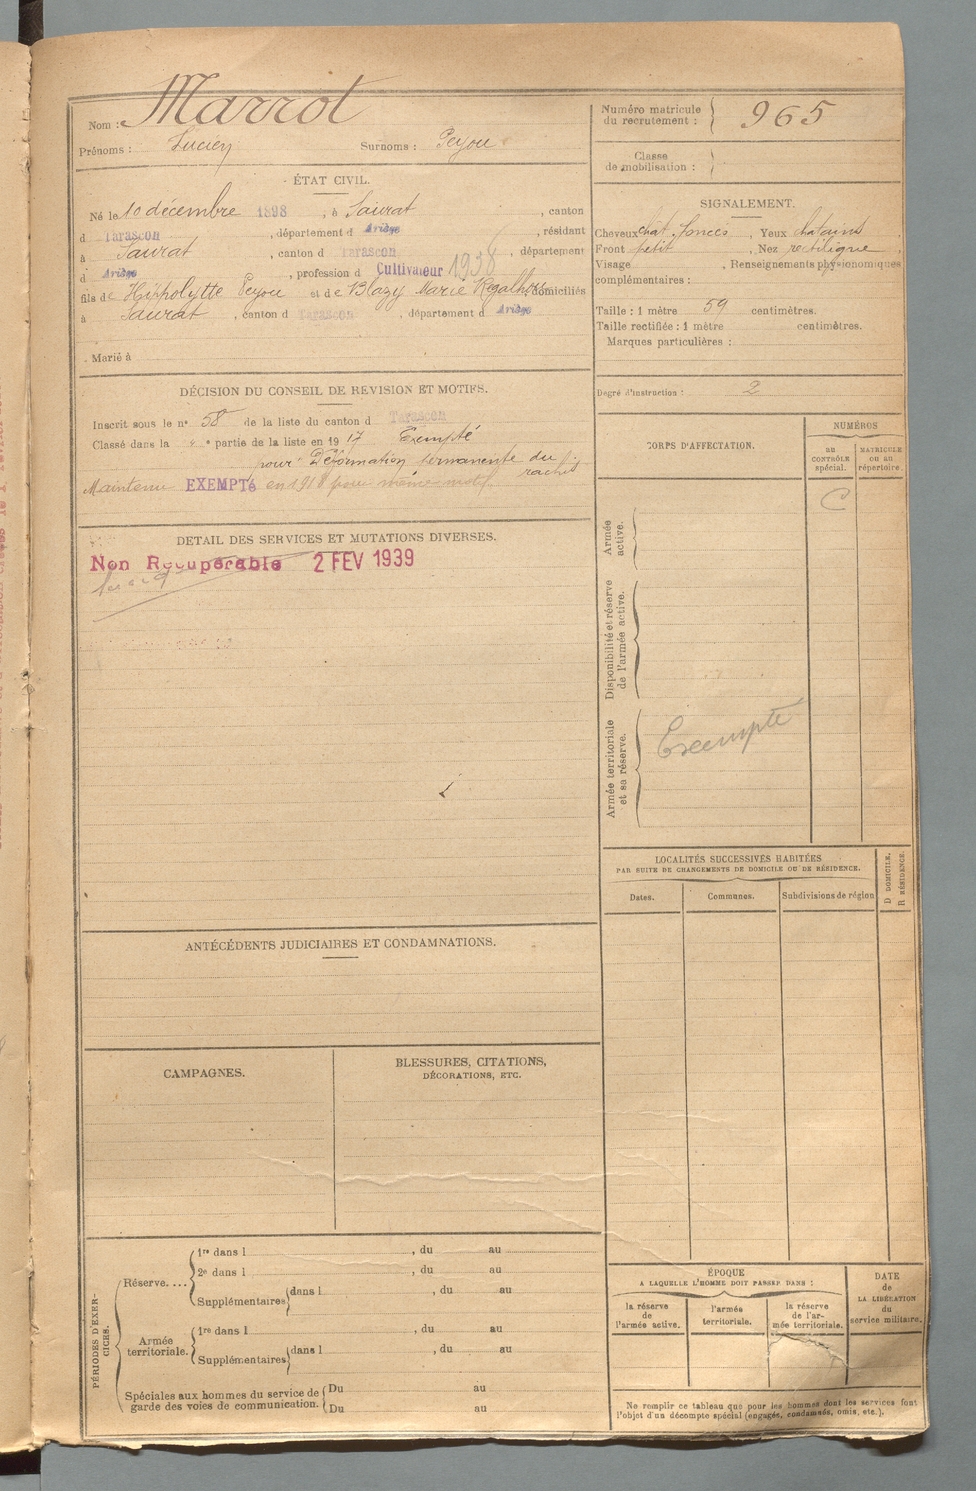 Nom : Marrot
Prénoms : Lucien Surnoms : Peyou
Numéro matricule du recrutement : 965
Classe de mobilisation :
ÉTAT CIVIL.
Né le 10 décembre 1898, à Saurat, canton
d Tarascon, département d Ariège, résidant
à Saurat, canton d Tarascon, département
d Ariège, profession d Cultivateur 1938
fils de Hippolytte Peyou et de Blazy Marie, domiciliés
à Saurat, canton d Tarascon, département d Ariège
Marié à
SIGNALEMENT.
Cheveux chât. foncés, Yeux chatains
Front petit, Nez rectiligne
Visage , Renseignements physionomiques
complémentaires :
Taille : 1 mètre 59 centimètres.
Taille rectifiée : 1 mètre centimètres.
Marques particulières :
Degré d'instruction : 2
DÉCISION DU CONSEIL DE REVISION ET MOTIFS.
Inscrit sous le n° 58 de la liste du canton d Tarascon
Classé dans la " e partie de la liste en 1917 Exempté
pour Déformation permanente du
rachis
Maintenu EXEMPTé en 1918 pour même motif
DÉTAIL DES SERVICES ET MUTATIONS DIVERSES.
Non Récupérable 2 FEV 1939
CORPS D'AFFECTATION.
NUMÉROS
au CONTRÔLE spécial.
MATRICULE ou au répertoire.
C
Armée active.
Disponibilité et réserve de l'armée active.
Armée territoriale et sa réserve.
Exempté
LOCALITÉS SUCCESSIVES HABITÉES
PAR SUITE DE CHANGEMENTS DE DOMICILE OU DE RÉSIDENCE.
Dates. Communes. Subdivisions de région
D DOMICILE.
R RÉSIDENCE.
ANTÉCÉDENTS JUDICIAIRES ET CONDAMNATIONS.
CAMPAGNES.
BLESSURES, CITATIONS,
DÉCORATIONS, ETC.
PÉRIODES D'EXERCICES.
Réserve....
1re dans l , du au
2e dans l , du au
Supplémentaires dans l , du au
Armée territoriale.
1re dans l , du au
Supplémentaires dans l , du au
Spéciales aux hommes du service de
garde des voies de communication.
Du au
Du au
ÉPOQUE
A LAQUELLE L'HOMME DOIT PASSER DANS :
la réserve de l'armée active.
l'armée territoriale.
la réserve de l'armée territoriale.
DATE de LA LIBÉRATION du service militaire.
Ne remplir ce tableau que pour les hommes dont les services font
l'objet d'un décompte spécial (engagés, condamnés, omis, etc.).